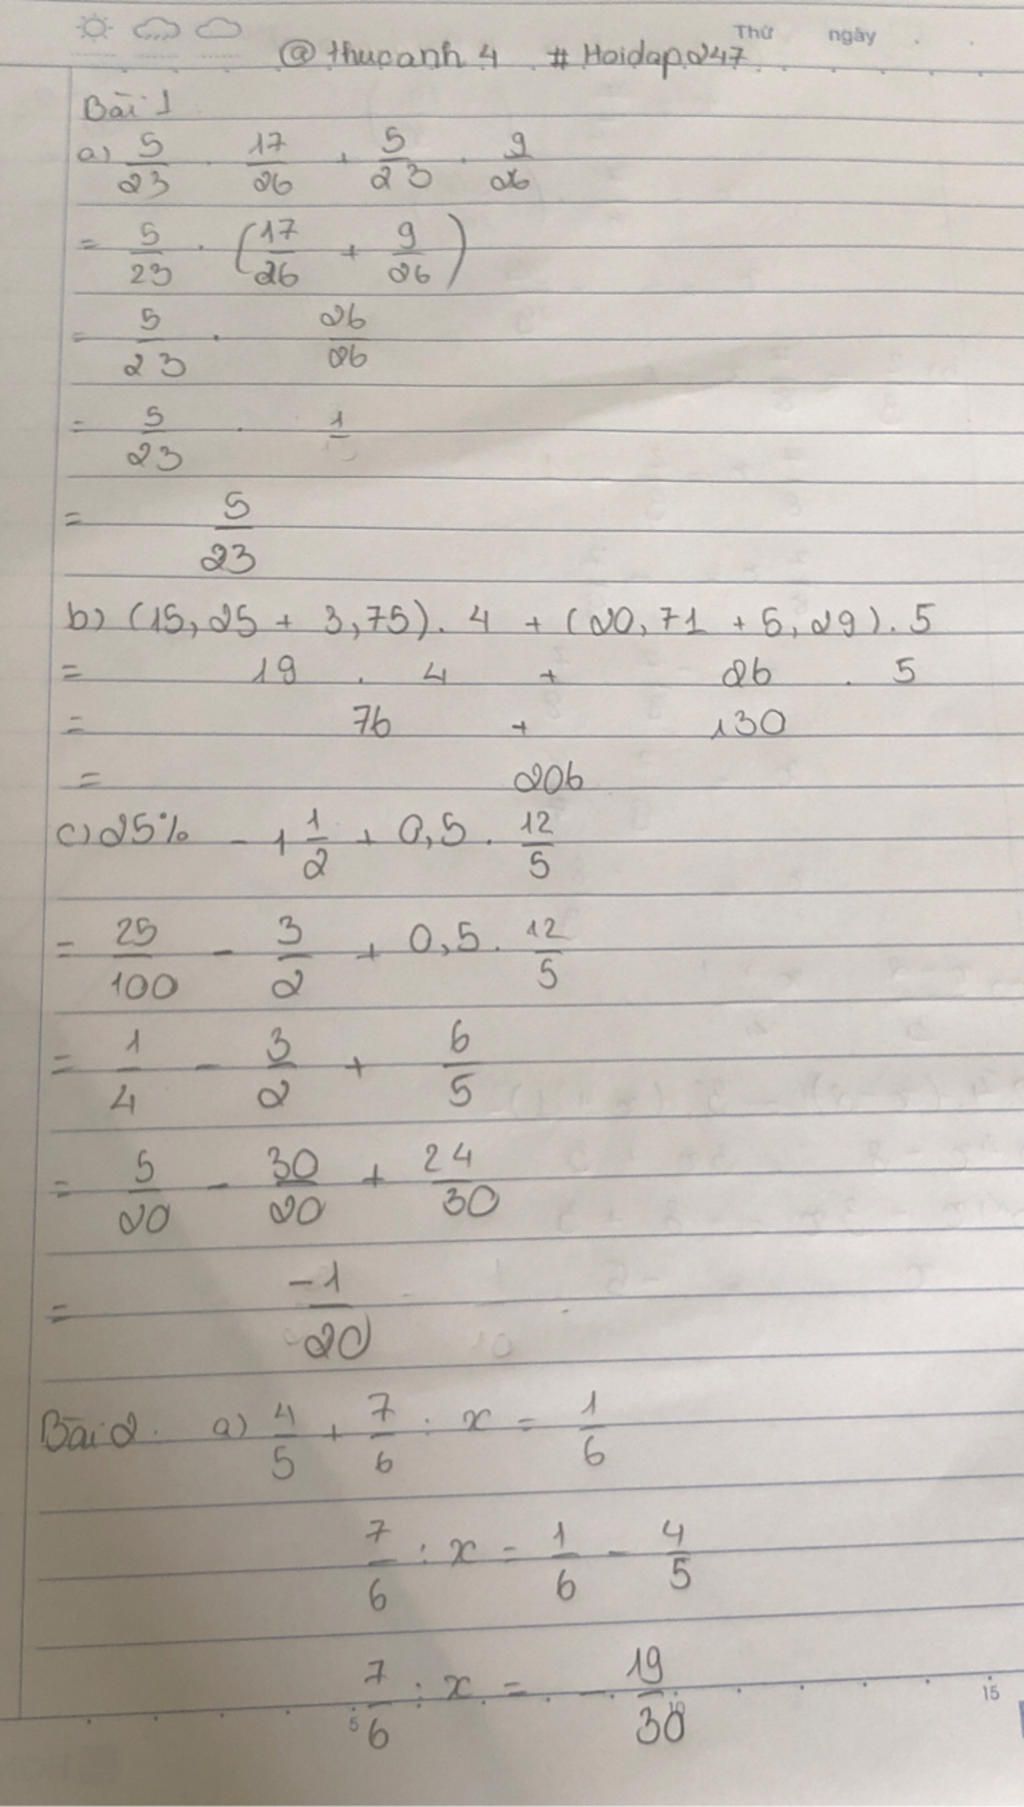 Thứ ngày
@thucanh4 #Hoidap247
Bài 1
a) 5/23 . 17/26 + 5/23 . 9/26
= 5/23 . (17/26 + 9/26)
= 5/23 . 26/26
= 5/23 . 1
= 5/23
b) (15,25 + 3,75). 4 + (20,71 + 5,29). 5
= 19 . 4 + 26 . 5
= 76 + 130
= 206
c) 25% - 1 1/2 + 0,5 . 12/5
= 25/100 - 3/2 + 0,5 . 12/5
= 1/4 - 3/2 + 6/5
= 5/20 - 30/20 + 24/30
= -1/20
Bài 2. a) 4/5 + 7/6 : x = 1/6
7/6 : x = 1/6 - 4/5
7/6 : x = - 19/30
5 10 15